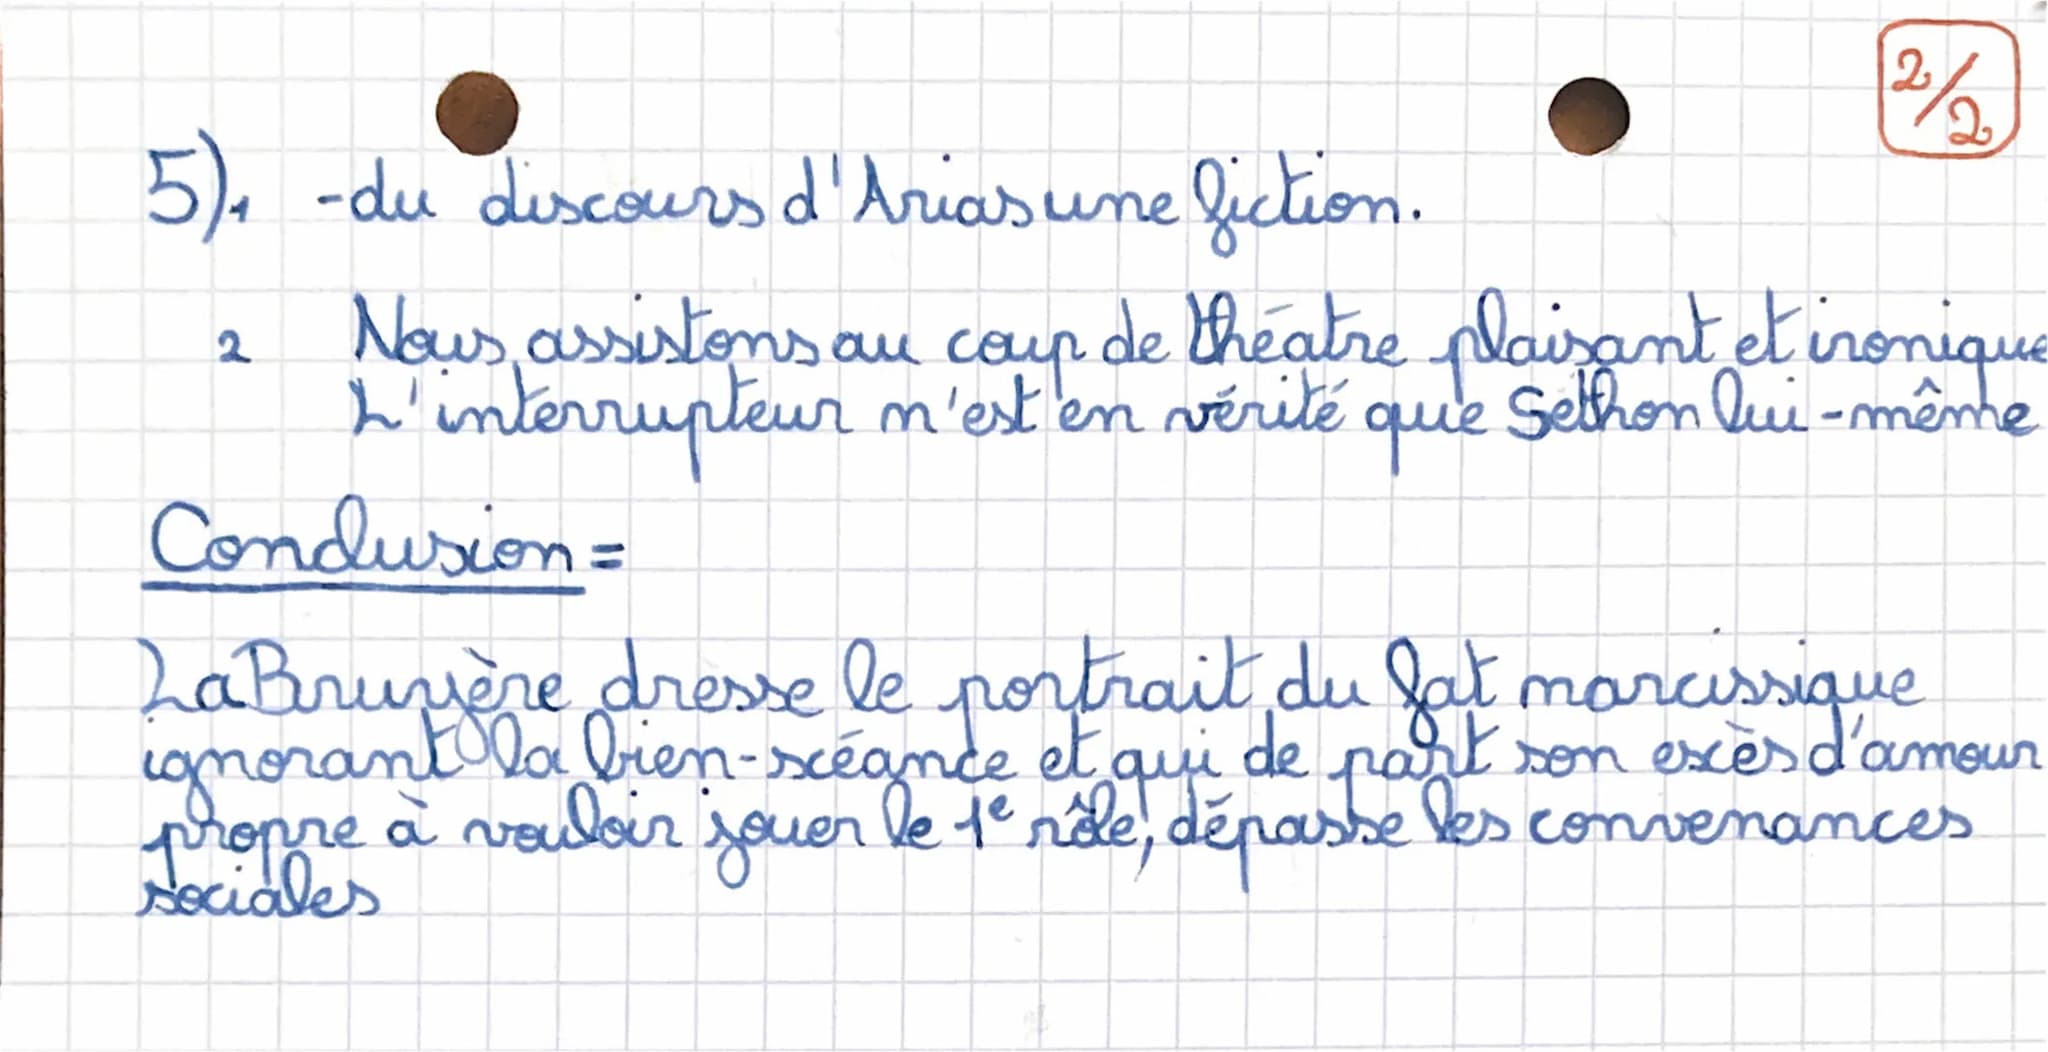 2/2
5).1 -du discours d'Arias une fiction.
2 Nous assistons au coup de théatre plaisant et ironique
L'interrupteur n'est en vérité que Sethon lui-même
Conclusion =
La Bruyère dresse le portrait du fat narcissique
ignorant la bien-scéance et qui de part son excès d'amour
propre à vouloir jouer le 1e rôle, dépasse les convenances
sociales